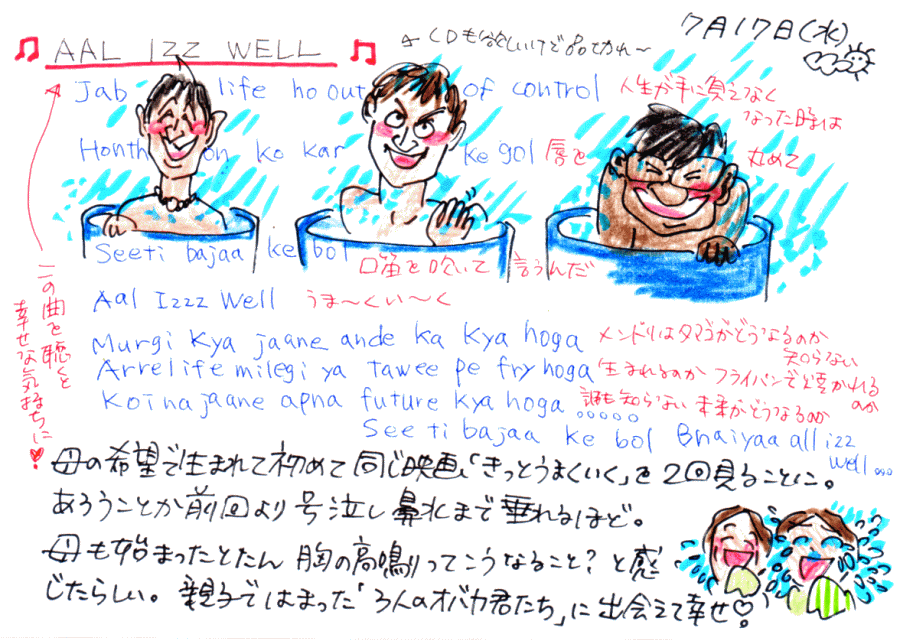 7月17日(水)
♫ AAL IZZ WELL ♫ ← CDも欲しいけど品切れ〜
Jab life ho out of control 人生が手に負えなく
なった時は
Honth on ko kar ke gol 唇を 丸めて
Seeti bajaa ke bol 口笛を吹いて 言うんだ
Aal Izzz Well うま〜くい〜く
Murgi Kya jaane ande ka Kya hoga メンドリはタマゴがどうなるのか
知らない
Arre life milegi ya tawee pe fry hoga 生まれるのか フライパンで焼かれる
のか
Koi na jaane apna future Kya hoga 。。。。。 誰も知らない 未来がどうなるのか
See ti bajaa ke bol Bhaiyaa all izz
well 。。。
この曲を聴くと
幸せな気持ちに♥
母の希望で生まれて初めて同じ映画「きっとうまくいく」を2回見ることに。
あろうことか前回より号泣し鼻水まで垂れるほど。
母も始まったとたん胸の高鳴りってこうなること?と感
じたらしい。親子ではまった「3人のオバカ君たち」に出会えて幸せ♡